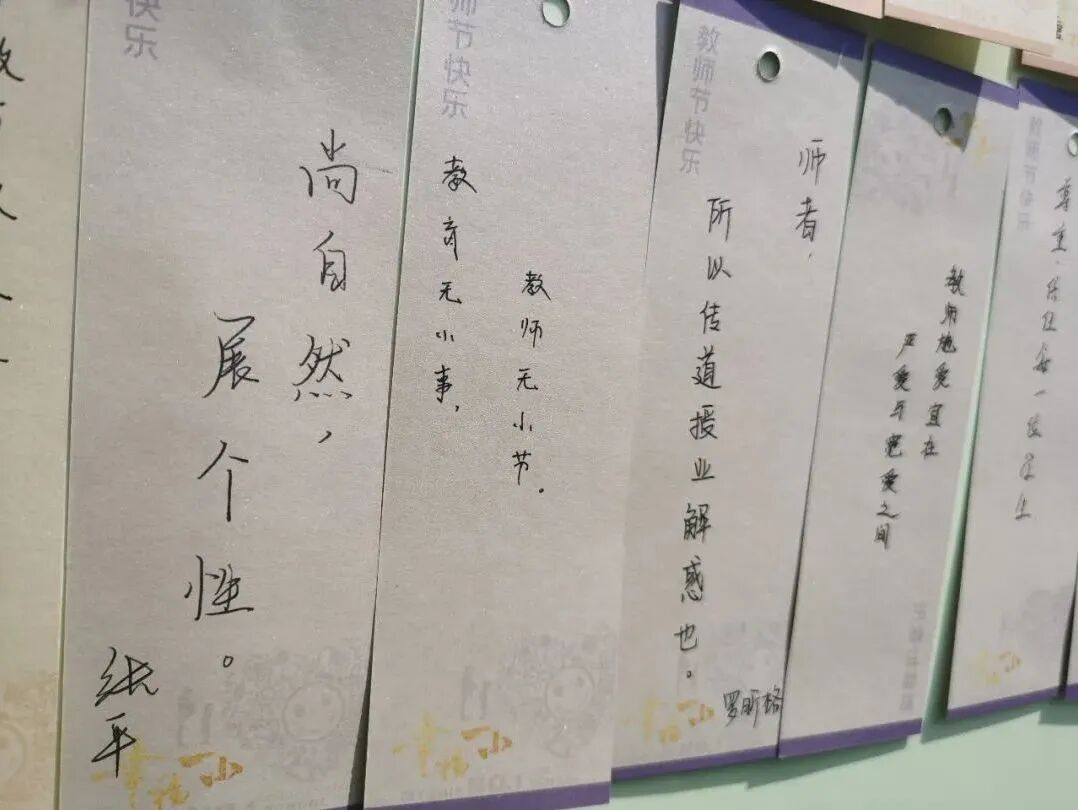 快乐
尚自然，
展个性。
幸福一小
师节快乐
教育无小事，
教师无小节。
幸福一小
教师节快乐
师者，
所以传道授业解惑也。
罗昕格
幸福一小
教师施爱宜在
严爱与宽爱之间
教师节快乐
尊重、信任每一位学生